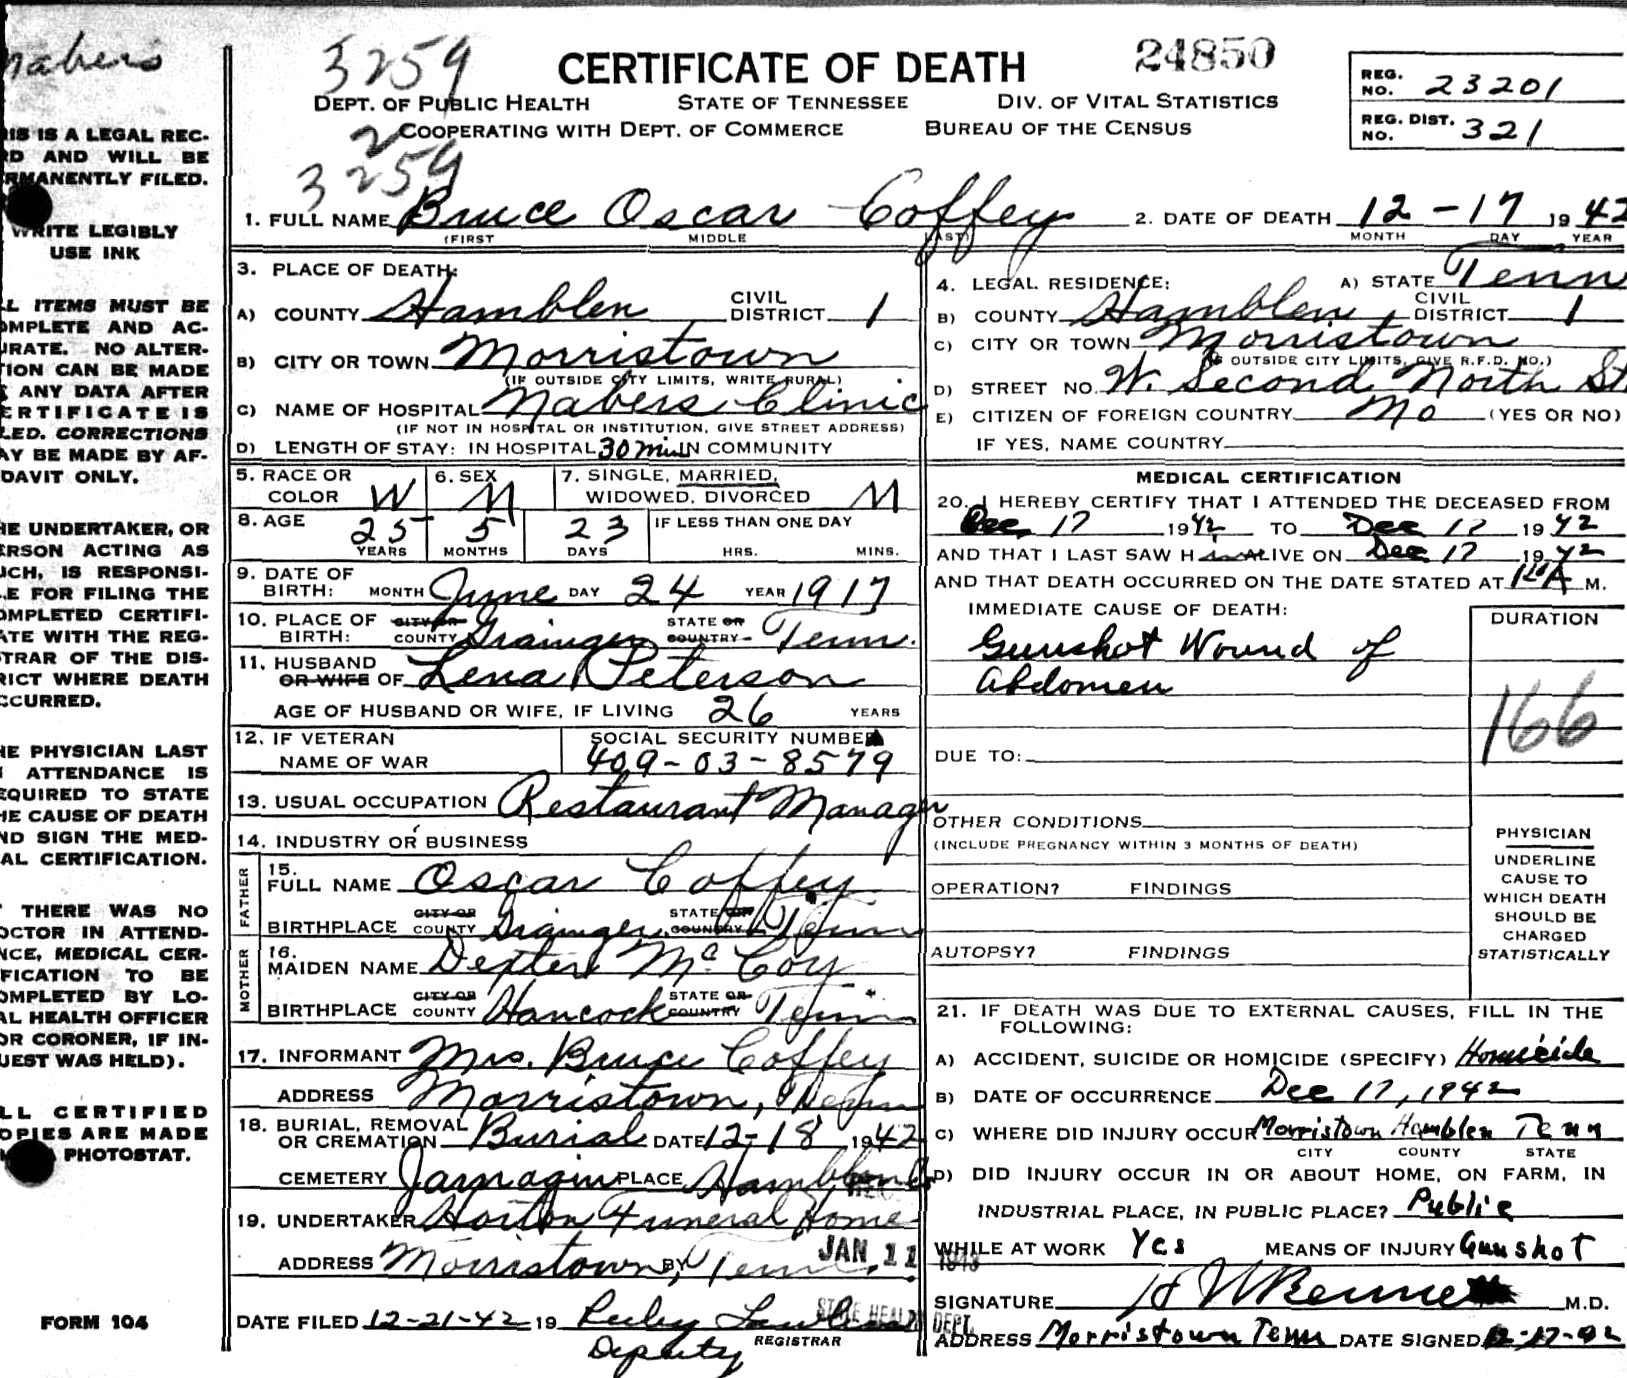 nabers
3259
CERTIFICATE OF DEATH
24850
REG. NO. 23201
DEPT. OF PUBLIC HEALTH STATE OF TENNESSEE DIV. OF VITAL STATISTICS
2 COOPERATING WITH DEPT. OF COMMERCE BUREAU OF THE CENSUS
REG. DIST. NO. 321
3259
1. FULL NAME Bruce Oscar Coffey 2. DATE OF DEATH 12-17 1942
(FIRST MIDDLE LAST) MONTH DAY YEAR
IS IS A LEGAL REC-
RD AND WILL BE
RMANENTLY FILED.
WRITE LEGIBLY
USE INK
LL ITEMS MUST BE
OMPLETE AND AC-
URATE. NO ALTER-
TION CAN BE MADE
ANY DATA AFTER
ERTIFICATE IS
LED. CORRECTIONS
AY BE MADE BY AF-
DAVIT ONLY.
HE UNDERTAKER, OR
ERSON ACTING AS
UCH, IS RESPONSI-
LE FOR FILING THE
OMPLETED CERTIFI-
ATE WITH THE REG-
TRAR OF THE DIS-
RICT WHERE DEATH
CCURRED.
HE PHYSICIAN LAST
ATTENDANCE IS
EQUIRED TO STATE
HE CAUSE OF DEATH
ND SIGN THE MED-
AL CERTIFICATION.
THERE WAS NO
OCTOR IN ATTEND-
NCE, MEDICAL CER-
IFICATION TO BE
OMPLETED BY LO-
AL HEALTH OFFICER
OR CORONER, IF IN-
UEST WAS HELD).
LL CERTIFIED
OPIES ARE MADE
PHOTOSTAT.
FORM 104
3. PLACE OF DEATH:
A) COUNTY Hamblen CIVIL DISTRICT 1
B) CITY OR TOWN Morristown
(IF OUTSIDE CITY LIMITS, WRITE RURAL)
C) NAME OF HOSPITAL Nabers Clinic
(IF NOT IN HOSPITAL OR INSTITUTION, GIVE STREET ADDRESS)
D) LENGTH OF STAY: IN HOSPITAL 30 min IN COMMUNITY
5. RACE OR COLOR W 6. SEX M 7. SINGLE, MARRIED, WIDOWED, DIVORCED M
8. AGE 25 5 23 IF LESS THAN ONE DAY
YEARS MONTHS DAYS HRS. MINS.
9. DATE OF BIRTH: MONTH June DAY 24 YEAR 1917
10. PLACE OF BIRTH: CITY OR COUNTY Grainger STATE OR COUNTRY Tenn.
11. HUSBAND OR WIFE OF Lena Peterson
AGE OF HUSBAND OR WIFE, IF LIVING 26 YEARS
12. IF VETERAN NAME OF WAR SOCIAL SECURITY NUMBER 409-03-8579
13. USUAL OCCUPATION Restaurant Manager
14. INDUSTRY OR BUSINESS
FATHER
15. FULL NAME Oscar Coffey
BIRTHPLACE CITY OR COUNTY Grainger STATE OR COUNTRY Tenn
MOTHER
16. MAIDEN NAME Dexter McCoy
BIRTHPLACE CITY OR COUNTY Hancock STATE OR COUNTRY Tenn
17. INFORMANT Mrs. Bruce Coffey
ADDRESS Morristown, Tenn
18. BURIAL, REMOVAL OR CREMATION Burial DATE 12-18 1942
CEMETERY Jarnagin PLACE Hamblen
19. UNDERTAKER Horton Funeral Home
ADDRESS Morristown, BY Tenn.
JAN 11 1943
STATE HEALTH DEPT.
DATE FILED 12-21-42 19
REGISTRAR
Deputy
4. LEGAL RESIDENCE: A) STATE Tenn
B) COUNTY Hamblen CIVIL DISTRICT 1
C) CITY OR TOWN Morristown
(IF OUTSIDE CITY LIMITS, GIVE R.F.D. NO.)
D) STREET NO. W. Second North St
E) CITIZEN OF FOREIGN COUNTRY No (YES OR NO)
IF YES, NAME COUNTRY
MEDICAL CERTIFICATION
20. I HEREBY CERTIFY THAT I ATTENDED THE DECEASED FROM
Dec. 17 1942 TO Dec 17 1942
AND THAT I LAST SAW H im ALIVE ON Dec 17 1942
AND THAT DEATH OCCURRED ON THE DATE STATED AT A M.
IMMEDIATE CAUSE OF DEATH: DURATION
Gunshot Wound of
Abdomen
166
DUE TO:
OTHER CONDITIONS
(INCLUDE PREGNANCY WITHIN 3 MONTHS OF DEATH)
OPERATION? FINDINGS
AUTOPSY? FINDINGS
PHYSICIAN
UNDERLINE
CAUSE TO
WHICH DEATH
SHOULD BE
CHARGED
STATISTICALLY
21. IF DEATH WAS DUE TO EXTERNAL CAUSES, FILL IN THE
FOLLOWING:
A) ACCIDENT, SUICIDE OR HOMICIDE (SPECIFY) Homicide
B) DATE OF OCCURRENCE Dec 17, 1942
C) WHERE DID INJURY OCCUR Morristown Hamblen Tenn
CITY COUNTY STATE
D) DID INJURY OCCUR IN OR ABOUT HOME, ON FARM, IN
INDUSTRIAL PLACE, IN PUBLIC PLACE? Public
WHILE AT WORK Yes MEANS OF INJURY Gunshot
SIGNATURE M.D.
ADDRESS Morristown Tenn DATE SIGNED 12-17-42